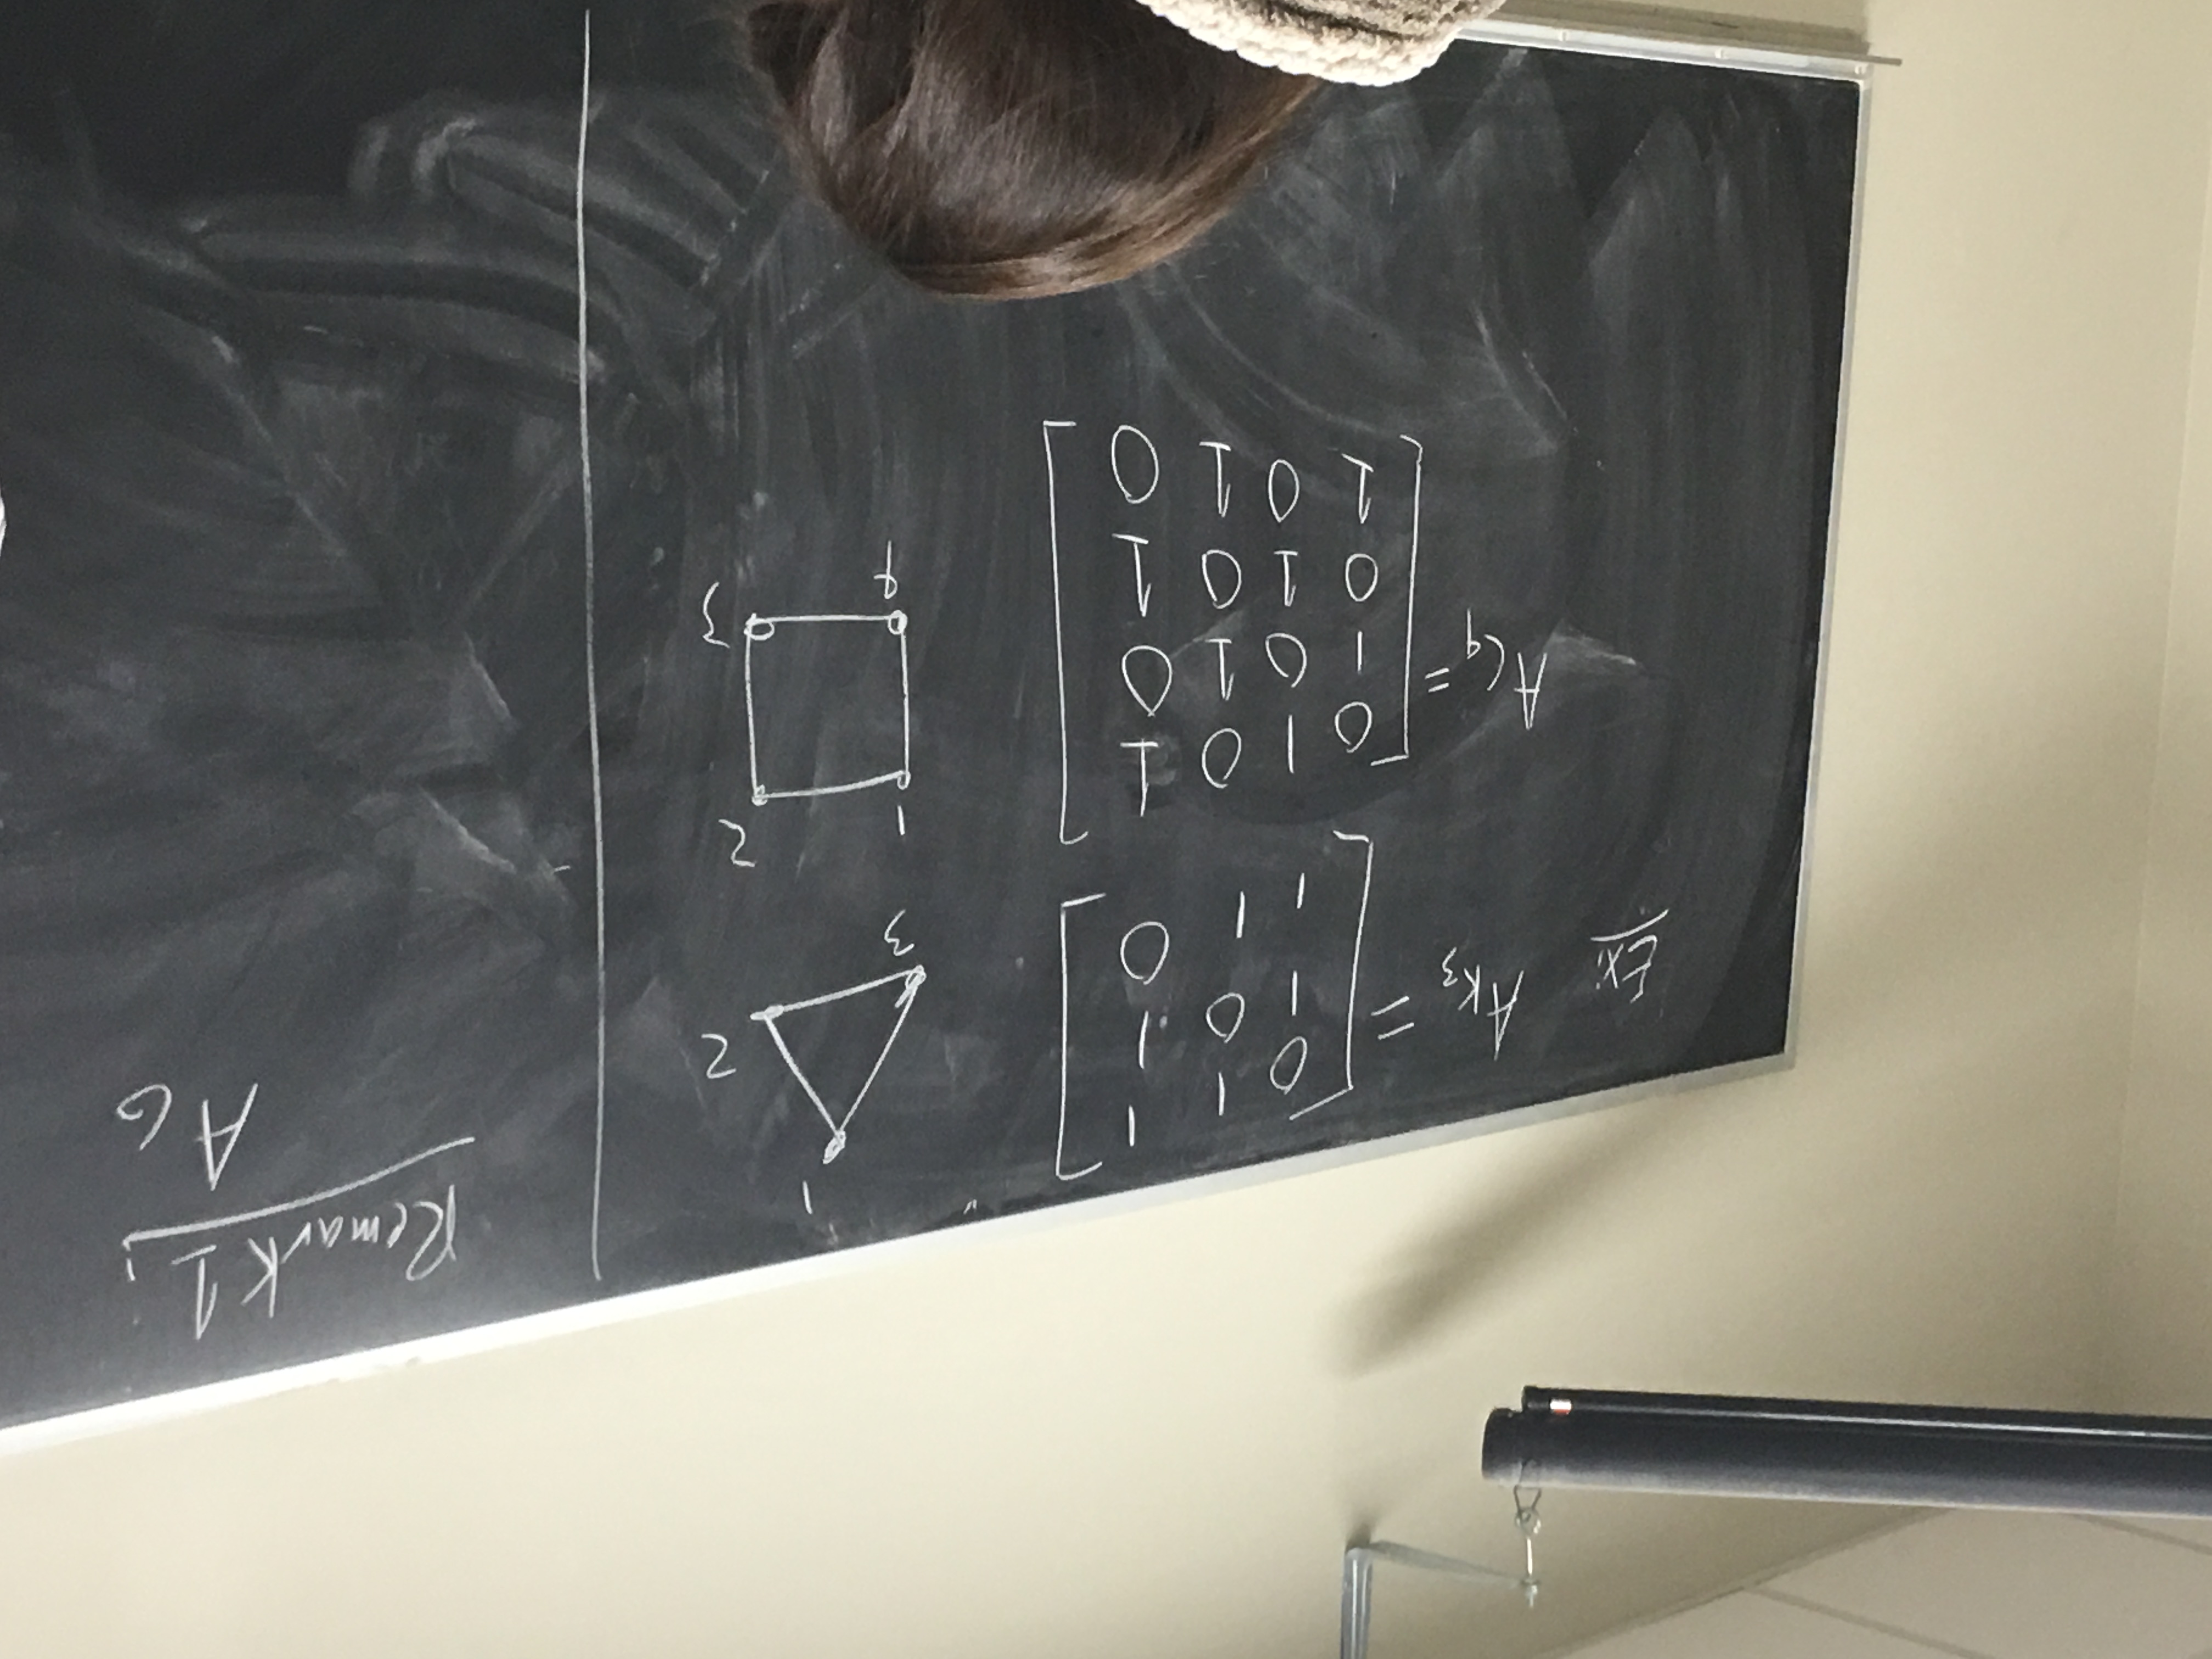 Ex:
A_K3 = [0 1 1
1 0 1
1 1 0]
1
2
3
A_C4 = [0 1 0 1
1 0 1 0
0 1 0 1
1 0 1 0]
1 2
4 3
Remark 1:
A_G